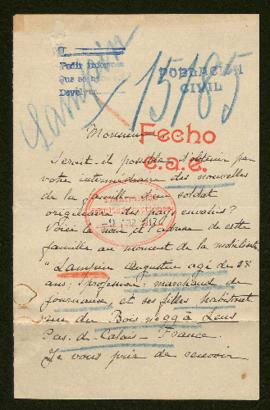 Pedir informes
POBLACIÓN
CIVIL
15185
Fecho
c.a.e.
Monsieur
Serait-il possible d'obtenir par
votre intermédiaire des nouvelles
de la famille d'un soldat
originaire des pays envahis?
Voici le nom et l'adresse de cette
famille au moment de la mobilisation
ans, profession marchand de
fourneaux, et ses filles habitant
rue du Bois nº 99 à Lens
Pas-de-Calais - France.
Je vous prie de recevoir